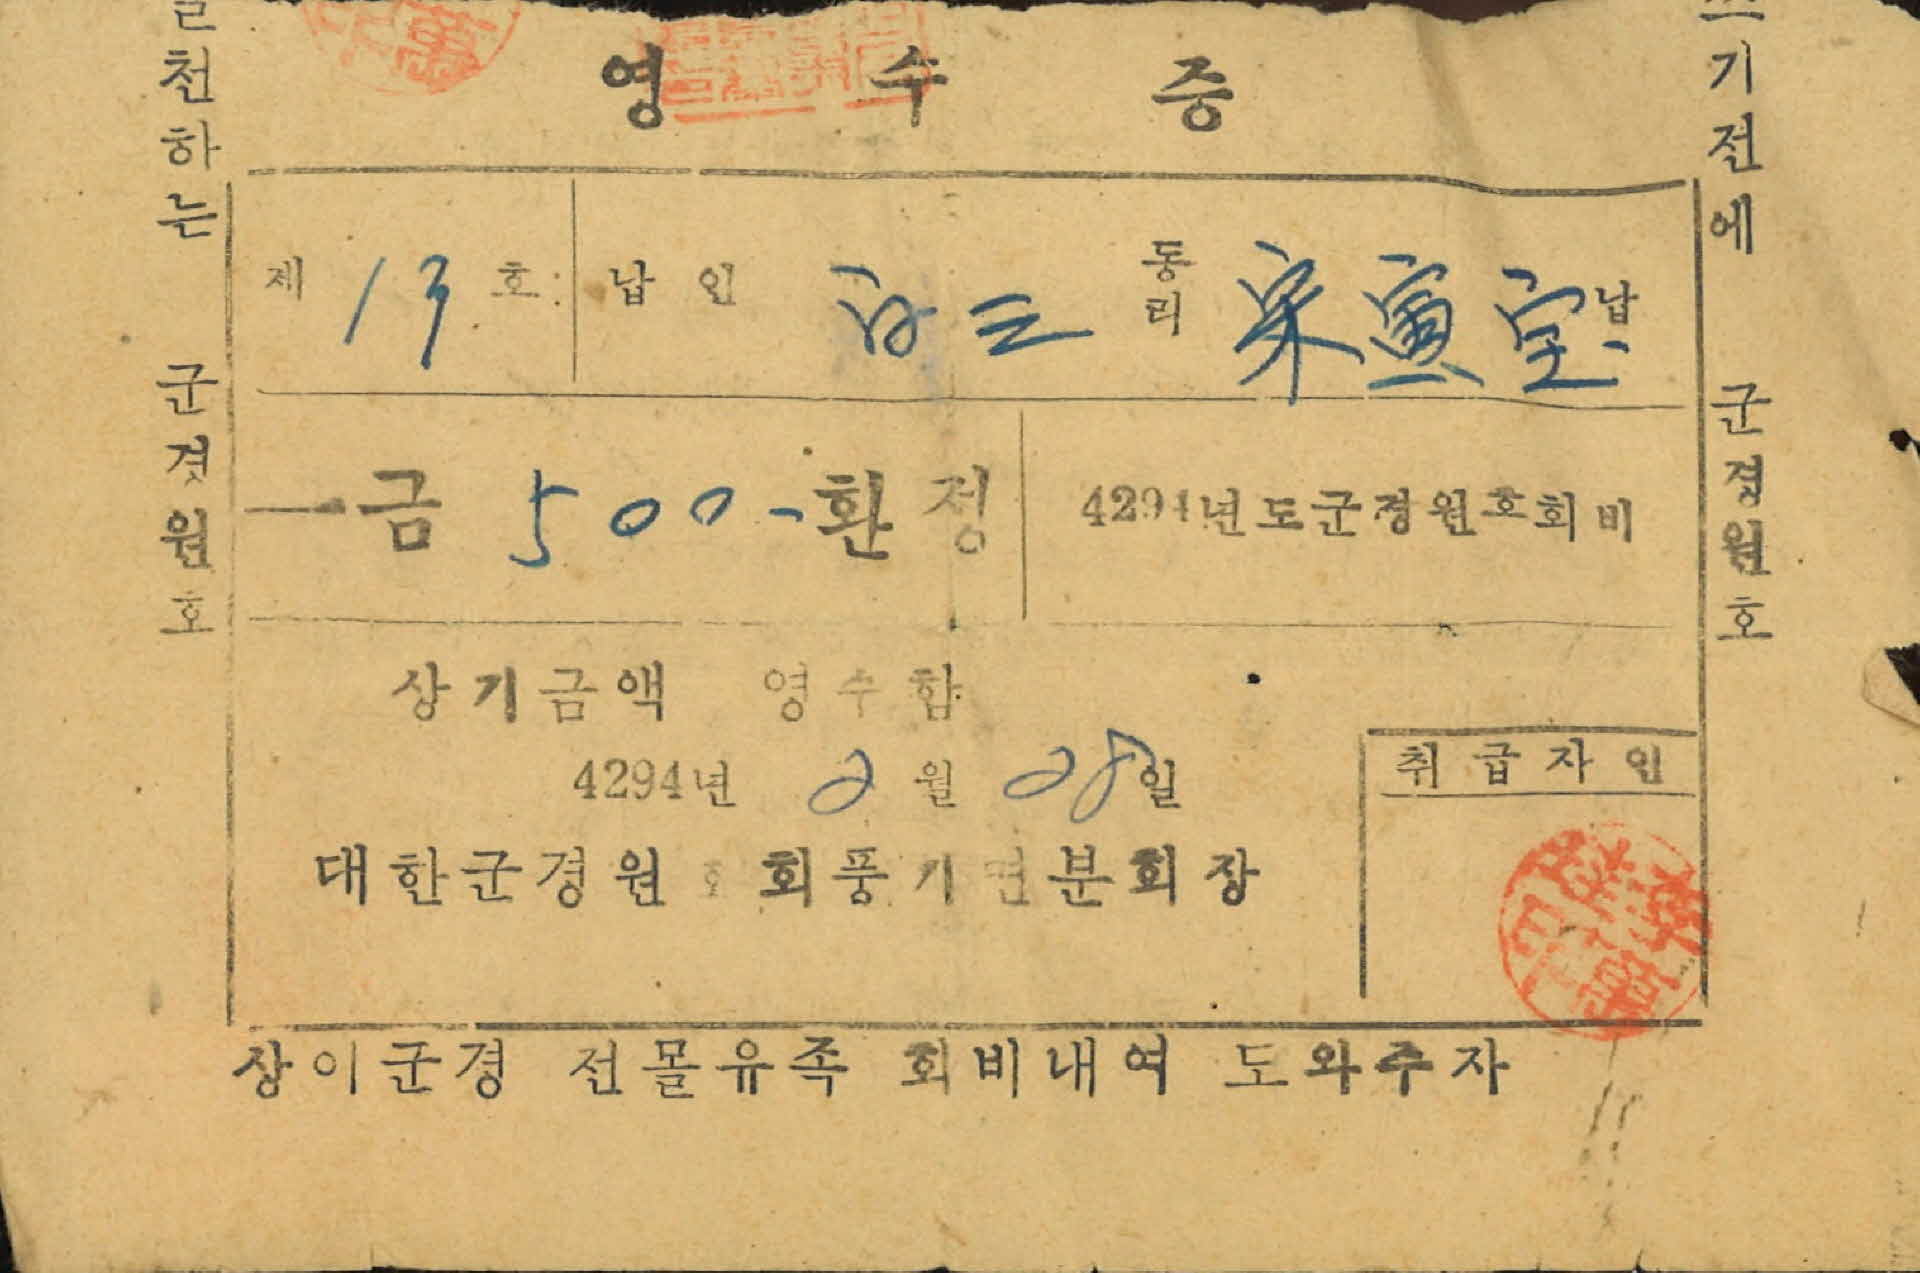 영 수 증
천하는 군경원호
기전에 군경원호
제 13 호 납 인 白三 동리 宋寅宝 납
一금 500- 환정 4294년도군경원호회비
상기금액 영수함
4294년 2월 28일
취급자인
대한군경원호회풍기면분회장
상이군경 전몰유족 회비내여 도와주자